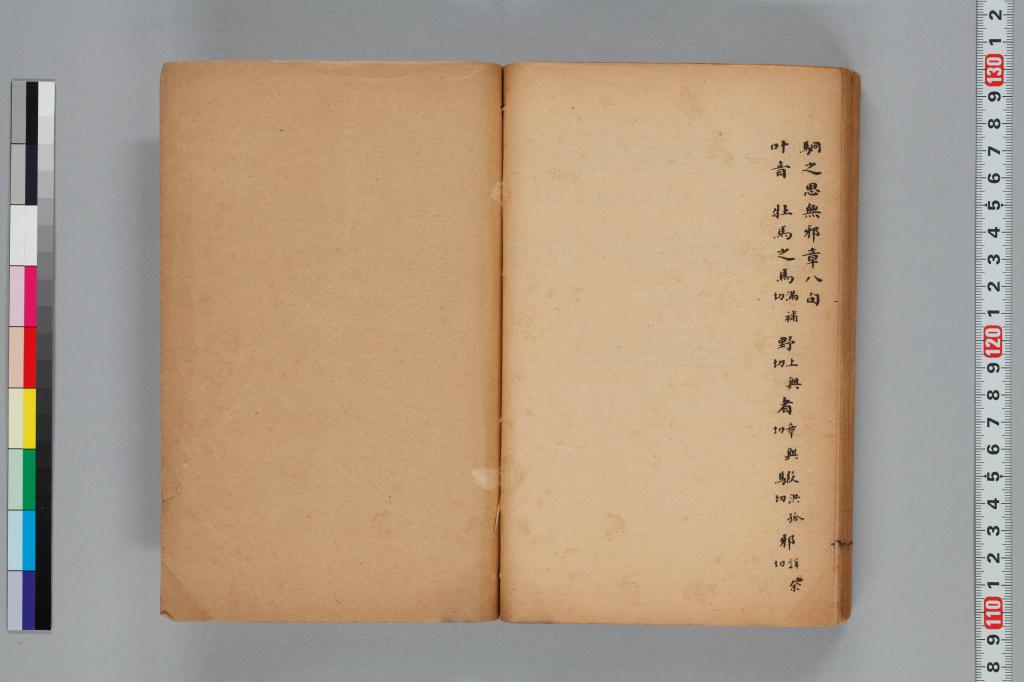 駉之思無邪章八句
叶音　牡馬之馬滿補切野上與切者章與切騢洪孤切邪詳余切
2
1
130
9
8
7
6
5
4
3
2
1
120
9
8
7
6
5
4
3
2
1
110
9
8